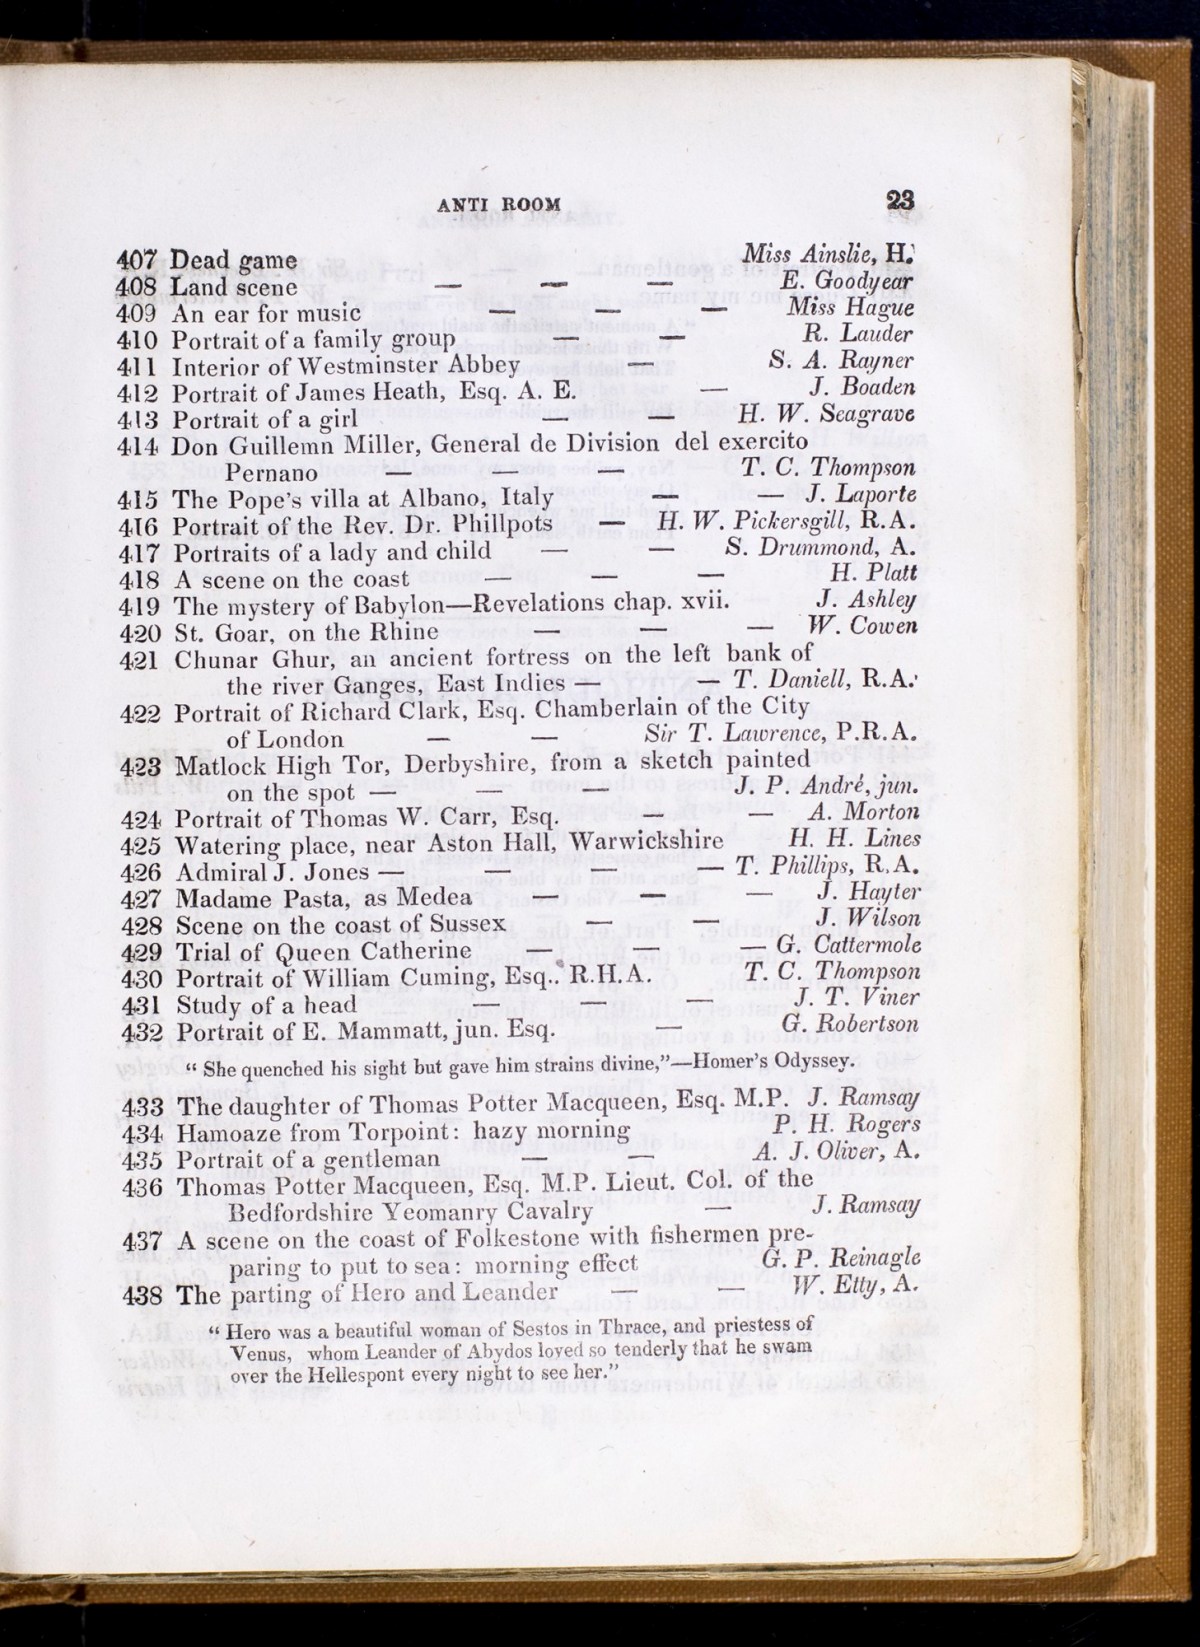 ANTI ROOM 23
407 Dead game Miss Ainslie, H.
408 Land scene — — — E. Goodyear
409 An ear for music — — — Miss Hague
410 Portrait of a family group — — R. Lauder
411 Interior of Westminster Abbey — S. A. Rayner
412 Portrait of James Heath, Esq. A. E. — J. Boaden
413 Portrait of a girl — — H. W. Seagrave
414 Don Guillemn Miller, General de Division del exercito
Pernano — — — T. C. Thompson
415 The Pope's villa at Albano, Italy — — J. Laporte
416 Portrait of the Rev. Dr. Phillpots — H. W. Pickersgill, R.A.
417 Portraits of a lady and child — — S. Drummond, A.
418 A scene on the coast — — — H. Platt
419 The mystery of Babylon—Revelations chap. xvii. J. Ashley
420 St. Goar, on the Rhine — — — W. Cowen
421 Chunar Ghur, an ancient fortress on the left bank of
the river Ganges, East Indies — — T. Daniell, R.A.
422 Portrait of Richard Clark, Esq. Chamberlain of the City
of London — — Sir T. Lawrence, P.R.A.
423 Matlock High Tor, Derbyshire, from a sketch painted
on the spot — — — J. P. André, jun.
424 Portrait of Thomas W. Carr, Esq. — — A. Morton
425 Watering place, near Aston Hall, Warwickshire H. H. Lines
426 Admiral J. Jones — — — — T. Phillips, R.A.
427 Madame Pasta, as Medea — — — J. Hayter
428 Scene on the coast of Sussex — — J. Wilson
429 Trial of Queen Catherine — — — G. Cattermole
430 Portrait of William Cuming, Esq. R.H.A. T. C. Thompson
431 Study of a head — — — J. T. Viner
432 Portrait of E. Mammatt, jun. Esq. — G. Robertson
“ She quenched his sight but gave him strains divine,”—Homer's Odyssey.
433 The daughter of Thomas Potter Macqueen, Esq. M.P. J. Ramsay
434 Hamoaze from Torpoint: hazy morning P. H. Rogers
435 Portrait of a gentleman — — A. J. Oliver, A.
436 Thomas Potter Macqueen, Esq. M.P. Lieut. Col. of the
Bedfordshire Yeomanry Cavalry — J. Ramsay
437 A scene on the coast of Folkestone with fishermen pre-
paring to put to sea: morning effect G. P. Reinagle
438 The parting of Hero and Leander — — W. Etty, A.
“ Hero was a beautiful woman of Sestos in Thrace, and priestess of
Venus, whom Leander of Abydos loved so tenderly that he swam
over the Hellespont every night to see her.”